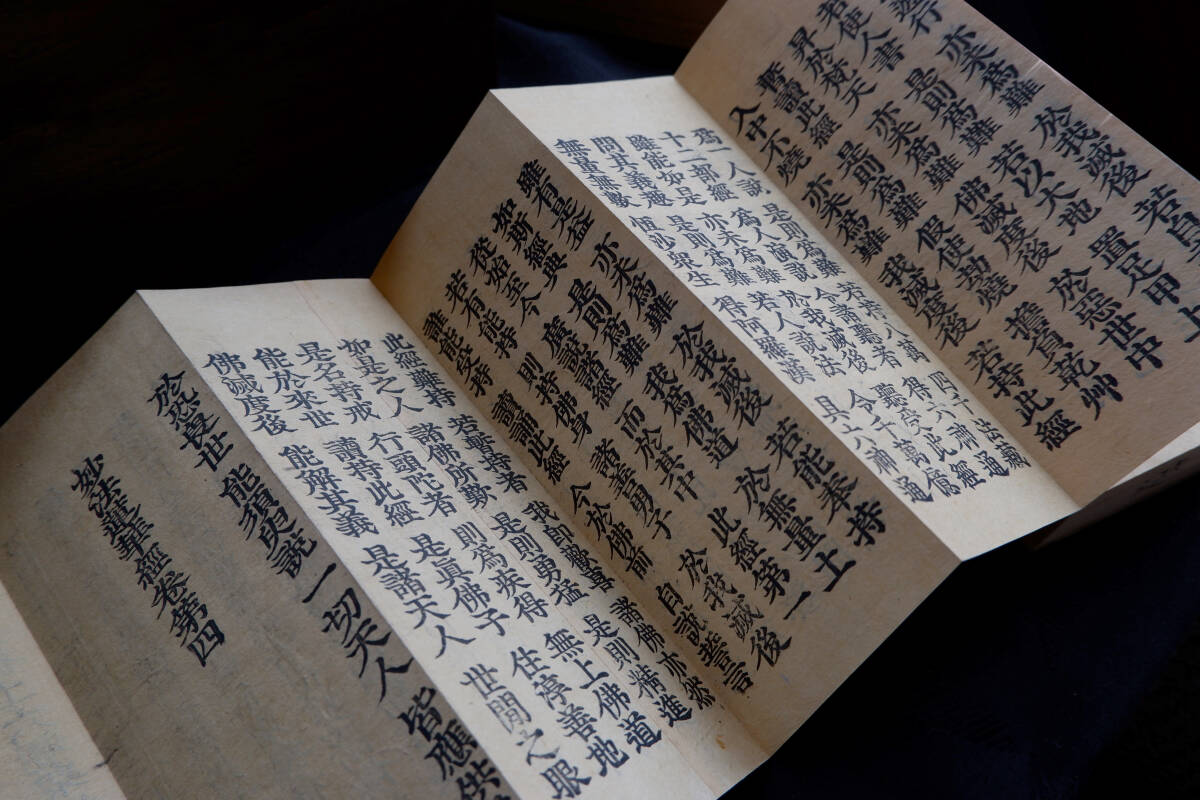 行 亦未為難 於我滅後 若自
若使人書 是則為難 若以大地 置足甲上
昇於梵天 亦未為難 佛滅度後 於惡世中
暫讀此經 是則為難 假使劫燒 擔負乾艸
入中不燒 亦未為難 我滅度後 若持此經
為一人說 是則為難 若持八萬 四千法藏
十二部經 為人演說 令諸聽者 得六神通
雖能如是 亦未為難 於我滅後 聽受此經
問其義趣 是則為難 若人說法 令千萬億
無量無數 恒沙眾生 得阿羅漢 具六神通
雖有是益 亦未為難 於我滅後 若能奉持
如斯經典 是則為難 我為佛道 於無量土
從始至今 廣說諸經 而於其中 此經第一
若有能持 則持佛身 諸善男子 於我滅後
誰能受持 讀誦此經 今於佛前 自說誓言
此經難持 若暫持者 我則歡喜 諸佛亦然
如是之人 諸佛所歎 是則勇猛 是則精進
是名持戒 行頭陀者 則為疾得 無上佛道
能於來世 讀持此經 是真佛子 住淳善地
佛滅度後 能解其義 是諸天人 世間之眼
於恐畏世 能須臾說 一切天人 皆應供
妙法蓮華經卷第四